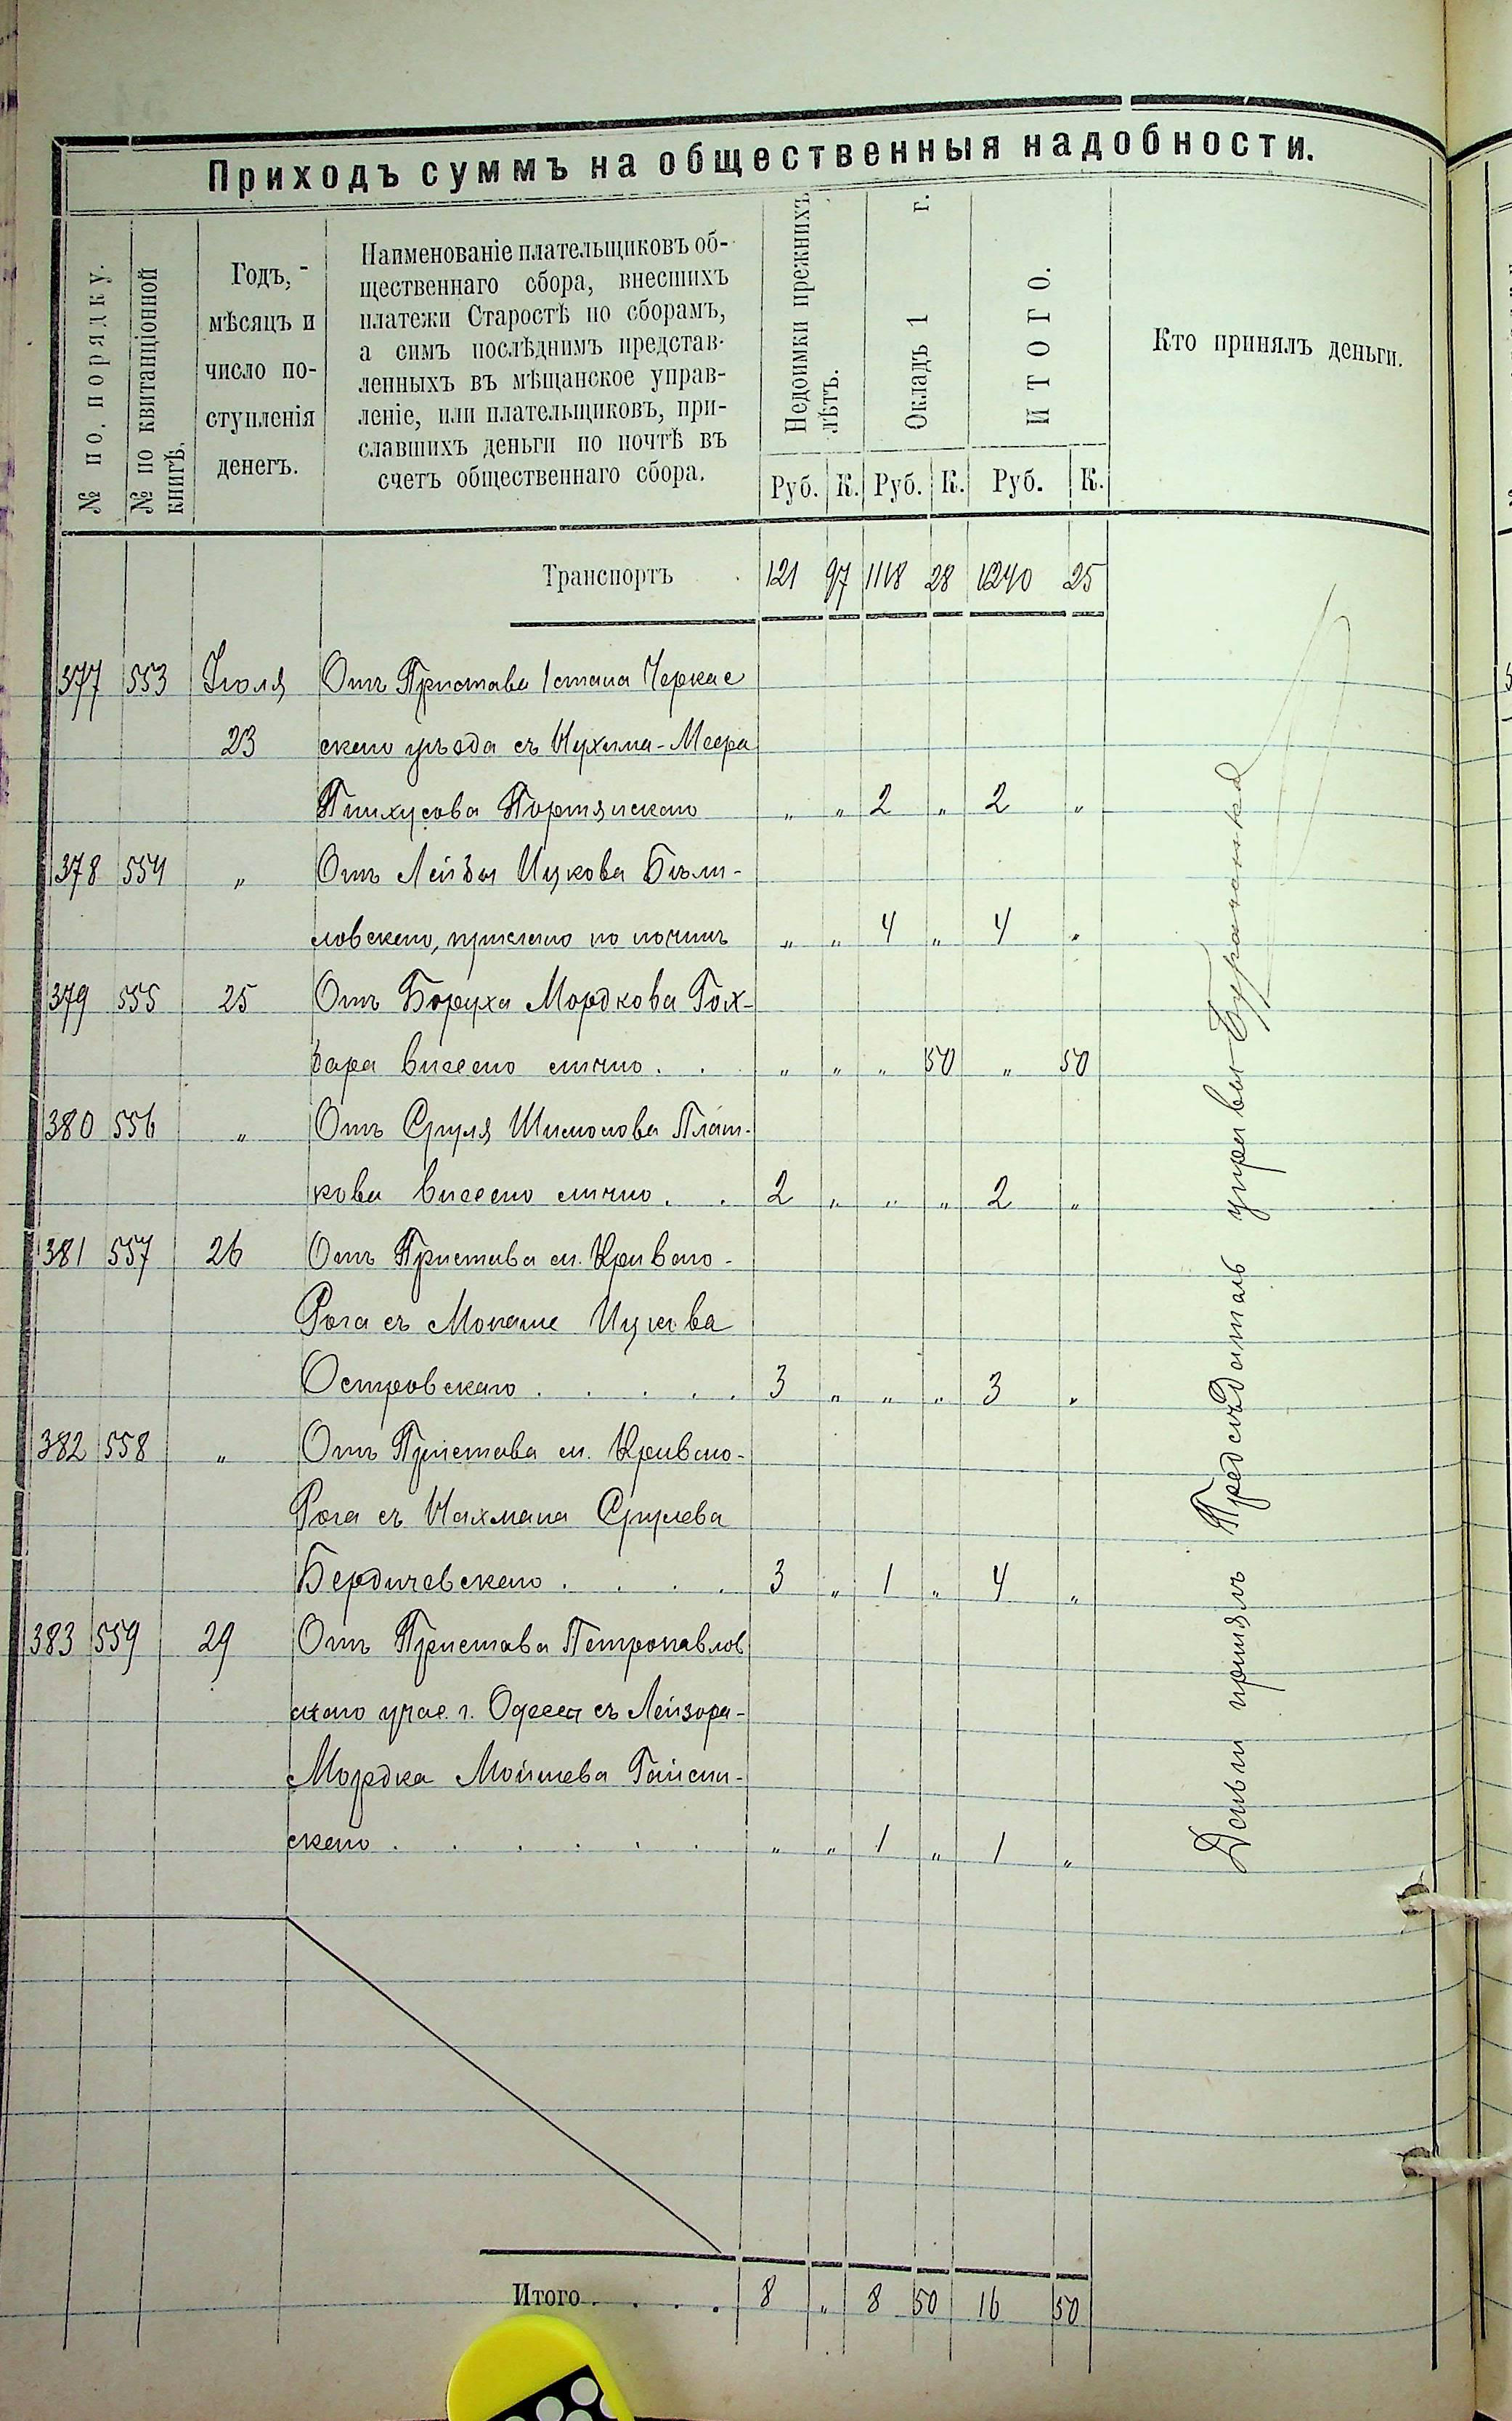 Приходъ суммъ на общественныя надобности.
№ по порядку.
№ по квитанціонной книгѣ.
Годъ, мѣсяцъ и число поступленія денегъ.
Наименованіе плательщиковъ об-
щественнаго сбора, внесшихъ
платежи Старостѣ по сборамъ,
а симъ послѣднимъ представ-
ленныхъ въ мѣщанское управ-
леніе, или плательщиковъ, при-
славшихъ деньги по почтѣ въ
счетъ общественнаго сбора.
Недоимки прежнихъ лѣтъ.
Окладъ 1 г.
ИТОГО.
Кто принялъ деньги.
Руб. К. Руб. К. Руб. К.
Транспортъ 121 97 1118 28 1240 25
377 553 Іюля Отъ Пристава 1 стана Черкас
23 скаго уѣзда съ Нухима-Меера
Пинхусова Портянскаго „ „ 2 „ 2 „
378 554 „ Отъ Лейзы Ицкова Бѣли-
ловскаго, прислано по почтѣ „ „ 4 „ 4 „
379 555 25 Отъ Боруха Мордкова Гох-
бара внесено лично . . „ „ „ 50 „ 50
380 556 „ Отъ Сруля Шимонова Плат-
кова внесено лично . . 2 „ „ „ 2 „
381 557 26 Отъ Пристава м. Криваго-
Рога съ Монаше Ицкова
Островскаго . . . . . 3 „ „ „ 3 „
382 558 „ Отъ Пристава м. Криваго-
Рога съ Нахмана Срулева
Бердичевскаго . . . . 3 „ 1 „ 4 „
383 559 29 Отъ Пристава Петропавлов
скаго учас. г. Одессы съ Лейзора-
Мордка Мойшева Гайсин-
скаго . . . . . . „ „ 1 „ 1 „
Итого . . . . 8 „ 8 50 16 50
Деньги принялъ Предсѣдатель управы